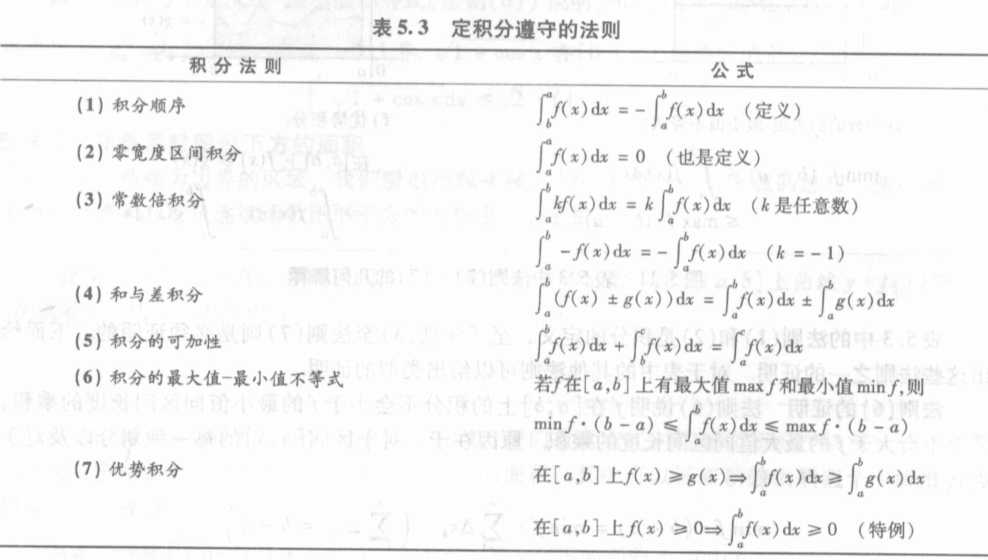 表 5.3 定积分遵守的法则
积 分 法 则 公 式
(1) 积分顺序 ∫_b^a f(x)dx = -∫_a^b f(x)dx (定义)
(2) 零宽度区间积分 ∫_a^a f(x)dx = 0 (也是定义)
(3) 常数倍积分 ∫_a^b kf(x)dx = k∫_a^b f(x)dx (k 是任意数)
∫_a^b -f(x)dx = -∫_a^b f(x)dx (k = -1)
(4) 和与差积分 ∫_a^b (f(x) ± g(x))dx = ∫_a^b f(x)dx ± ∫_a^b g(x)dx
(5) 积分的可加性 ∫_a^b f(x)dx + ∫_b^c f(x)dx = ∫_a^c f(x)dx
(6) 积分的最大值-最小值不等式 若f在[a,b]上有最大值 max f 和最小值 min f,则
min f·(b-a) ≤ ∫_a^b f(x)dx ≤ max f·(b-a)
(7) 优势积分 在[a,b]上f(x) ≥ g(x)⇒∫_a^b f(x)dx ≥ ∫_a^b g(x)dx
在[a,b]上f(x) ≥ 0⇒∫_a^b f(x)dx ≥ 0 (特例)